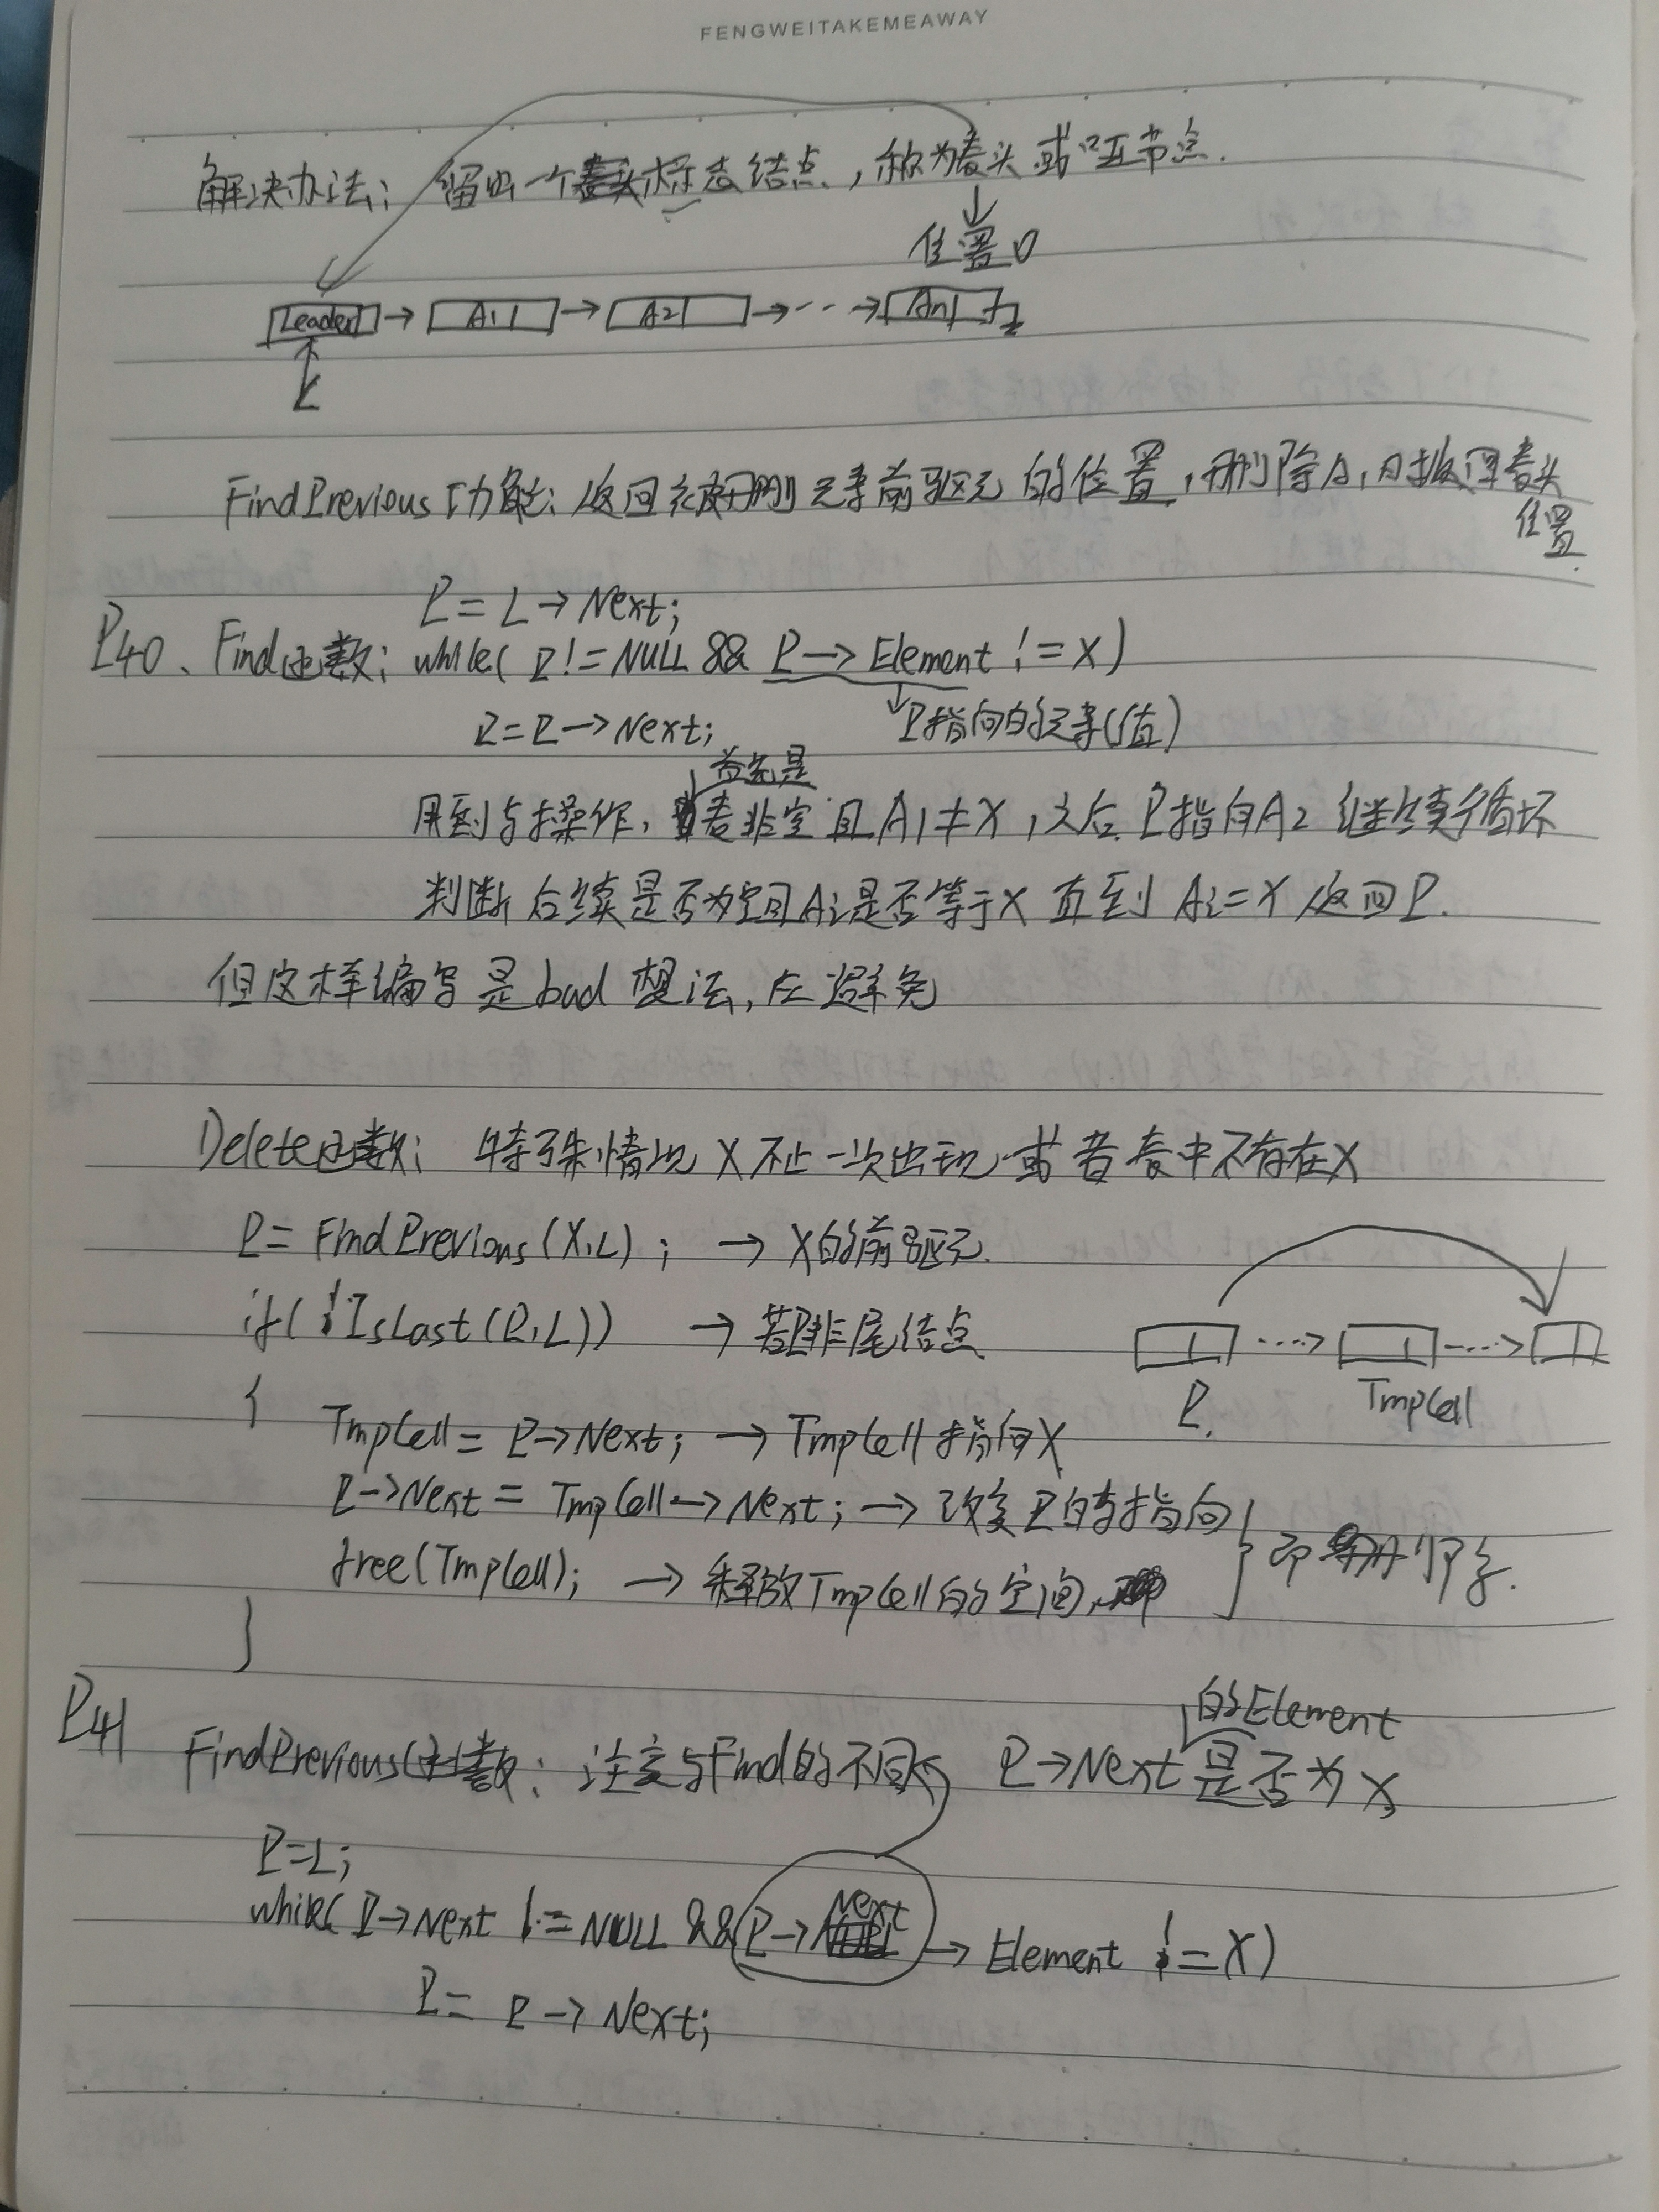 FENGWEITAKEMEAWAY
解决办法: 留出一个标志结点, 称为表头或哑节点.
位置0
Leader → A1 → A2 → ··· → An
L
FindPrevious功能: 返回被删元素前驱元的位置, 删除A1时返回表头
位置.
P = L → Next;
P40、Find函数: while( P != NULL && P → Element != X )
P = P → Next; P指向的元素(值)
首先是
用到与操作, 表非空且A1≠X, 之后P指向A2 继续循环
判断后续是否为空且Ai是否等于X 直到 Ai=X 返回P.
但这样编写是bad想法, 应避免
Delete函数: 特殊情况 X不止一次出现 或者表中不存在X
P = FindPrevious(X,L); → X的前驱元.
if( !IsLast(P,L)) → 若P非尾结点
{
P. TmpCell
TmpCell = P → Next; → TmpCell指向X
P → Next = TmpCell → Next; → 改变P的指向
free(TmpCell); → 释放TmpCell的空间, } 即删除.
}
P41
的Element
FindPrevious函数: 注意与Find的不同 P → Next 是否为X
P=L;
while( P → Next != NULL && P → Next → Element != X)
P = P → Next;